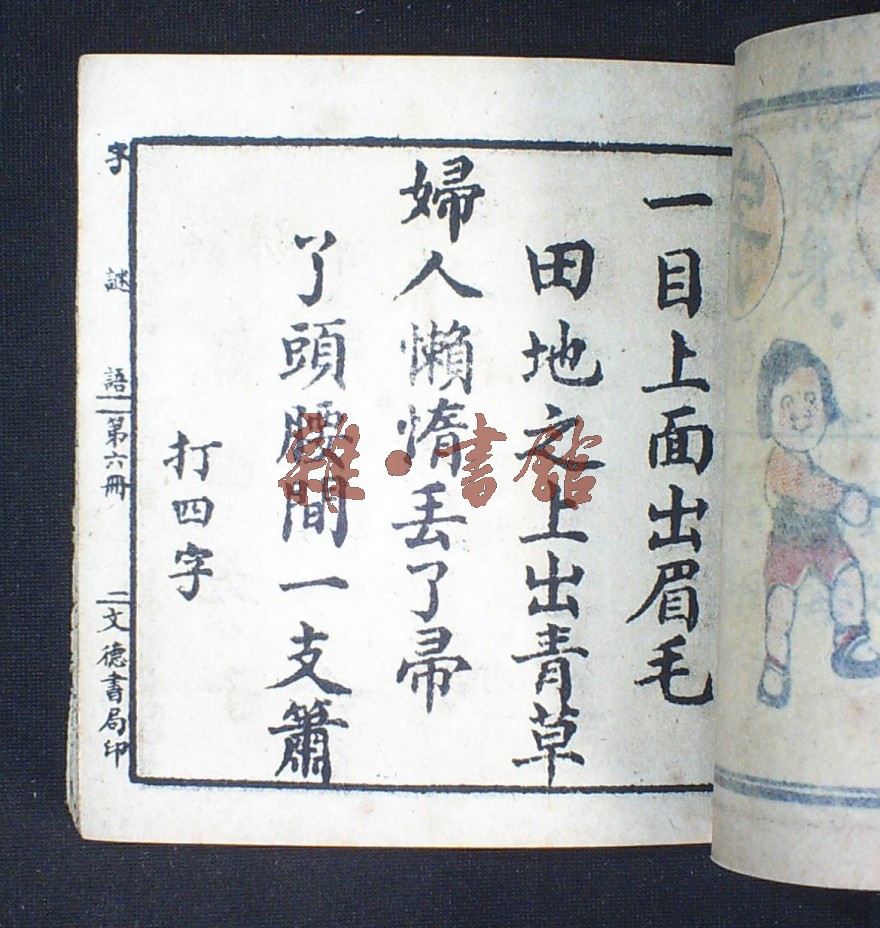 一目上面出眉毛
田地之上出青草
婦人懶惰丟了帚
了頭腰間一支簫
打四字
字謎語
第六冊
文德書局印
雜·書館